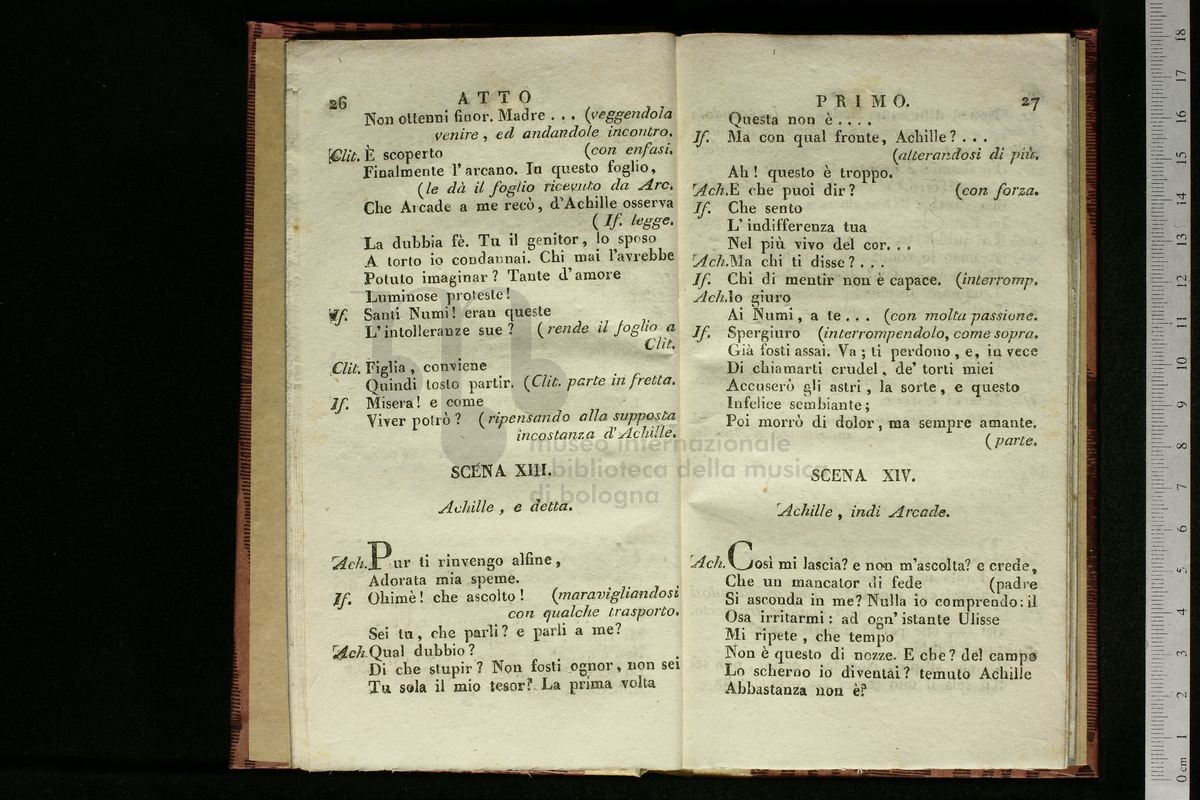 26
ATTO
Non ottenni finor. Madre . . . (veggendola
venire, ed andandole incontro.
Clit. È scoperto (con enfasi.
Finalmente l'arcano. In questo foglio,
(le dà il foglio ricevuto da Arc.
Che Arcade a me recò, d'Achille osserva
( If. legge.
La dubbia fè. Tu il genitor, lo sposo
A torto io condannai. Chi mai l'avrebbe
Potuto imaginar? Tante d'amore
Luminose proteste!
If. Santi Numi! eran queste
L'intolleranze sue? (rende il foglio a
Clit.
Clit. Figlia, conviene
Quindi tosto partir. (Clit. parte in fretta.
If. Misera! e come
Viver potrò? (ripensando alla supposta
incostanza d'Achille.
SCENA XIII.
Achille, e detta.
Ach. Pur ti rinvengo alfine,
Adorata mia speme.
If. Ohimè! che ascolto! (maravigliandosi
con qualche trasporto.
Sei tu, che parli? e parli a me?
Ach. Qual dubbio?
Di che stupir? Non fosti ognor, non sei
Tu sola il mio tesor? La prima volta
PRIMO.
27
Questa non è . . . .
If. Ma con qual fronte, Achille? . . .
(alterandosi di più.
Ah! questo è troppo.
Ach. E che puoi dir? (con forza.
If. Che sento
L'indifferenza tua
Nel più vivo del cor. . .
Ach. Ma chi ti disse? . . .
If. Chi di mentir non è capace. (interromp.
Ach. Io giuro
Ai Numi, a te . . . (con molta passione.
If. Spergiuro (interrompendolo, come sopra.
Già fosti assai. Va; ti perdono, e, in vece
Di chiamarti crudel, de' torti miei
Accuserò gli astri, la sorte, e questo
Infelice sembiante;
Poi morrò di dolor, ma sempre amante.
(parte.
SCENA XIV.
Achille, indi Arcade.
Ach. Così mi lascia? e non m'ascolta? e crede,
Che un mancator di fede (padre
Si asconda in me? Nulla io comprendo: il
Osa irritarmi: ad ogn'istante Ulisse
Mi ripete, che tempo
Non è questo di nozze. E che? del campo
Lo scherno io diventai? temuto Achille
Abbastanza non è?
museo internazionale
e biblioteca della musica
di bologna
0 cm 1 2 3 4 5 6 7 8 9 10 11 12 13 14 15 16 17 18